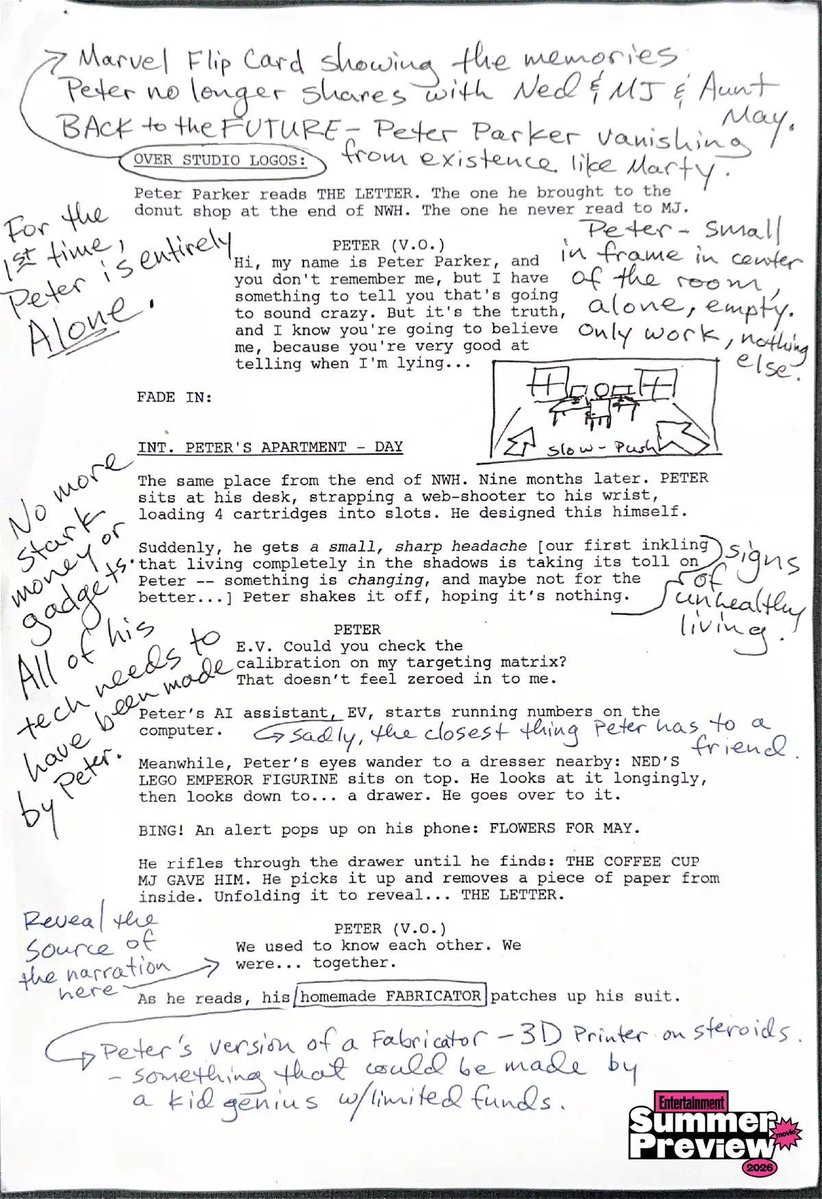 Marvel Flip Card showing the memories
Peter no longer shares with Ned & MJ & Aunt
May.
BACK to the FUTURE - Peter Parker vanishing
from existence like Marty.
OVER STUDIO LOGOS:
Peter Parker reads THE LETTER. The one he brought to the
donut shop at the end of NWH. The one he never read to MJ.
For the
1st time,
Peter is entirely
Alone.
PETER (V.O.)
Hi, my name is Peter Parker, and
you don't remember me, but I have
something to tell you that's going
to sound crazy. But it's the truth,
and I know you're going to believe
me, because you're very good at
telling when I'm lying...
Peter - small
in frame in center
of the room,
alone, empty.
Only work, nothing
else.
FADE IN:
Slow-Push
INT. PETER'S APARTMENT - DAY
The same place from the end of NWH. Nine months later. PETER
sits at his desk, strapping a web-shooter to his wrist,
loading 4 cartridges into slots. He designed this himself.
No more
stark
money or
gadgets.
All of his
tech needs to
have been made
by Peter.
Suddenly, he gets a small, sharp headache [our first inkling
that living completely in the shadows is taking its toll on
Peter -- something is changing, and maybe not for the
better...] Peter shakes it off, hoping it's nothing.
signs
of
unhealthy
living.
PETER
E.V. Could you check the
calibration on my targeting matrix?
That doesn't feel zeroed in to me.
Peter's AI assistant, EV, starts running numbers on the
computer.
sadly, the closest thing Peter has to a
friend.
Meanwhile, Peter's eyes wander to a dresser nearby: NED'S
LEGO EMPEROR FIGURINE sits on top. He looks at it longingly,
then looks down to... a drawer. He goes over to it.
BING! An alert pops up on his phone: FLOWERS FOR MAY.
He rifles through the drawer until he finds: THE COFFEE CUP
MJ GAVE HIM. He picks it up and removes a piece of paper from
inside. Unfolding it to reveal... THE LETTER.
Reveal the
source of
the narration
here
PETER (V.O.)
We used to know each other. We
were... together.
As he reads, his homemade FABRICATOR patches up his suit.
Peter's version of a Fabricator - 3D Printer on steroids.
- something that could be made by
a kid genius w/limited funds.
Entertainment
Summer
movie
Preview
2026